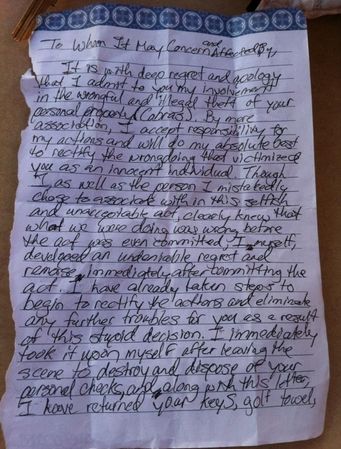 To Whom It May Concern and Affected By,
It is with deep regret and apology
that I admit to you my involvement
in the wrongful and illegal theft of your
personal property (Cobras). By mere
association, I accept responsibility for
my actions and will do my absolute best
to rectify the wrongdoing that victimized
you as an innocent individual. Though
I as well as the person I mistakedly
chose to associate with in this selfish
and unacceptable act, clearly knew that
what we were doing was wrong before
the act was even committed, I myself,
developed an undeniable regret and
remorse immediately after committing the
act. I have already taken steps to
begin to rectify the actions and eliminate
any further troubles for you as a result
of this stupid decision. I immediately
took it upon myself after leaving the
scene to destroy and dispose of your
personal checks, and along with this letter,
I have returned your keys, golf towel,